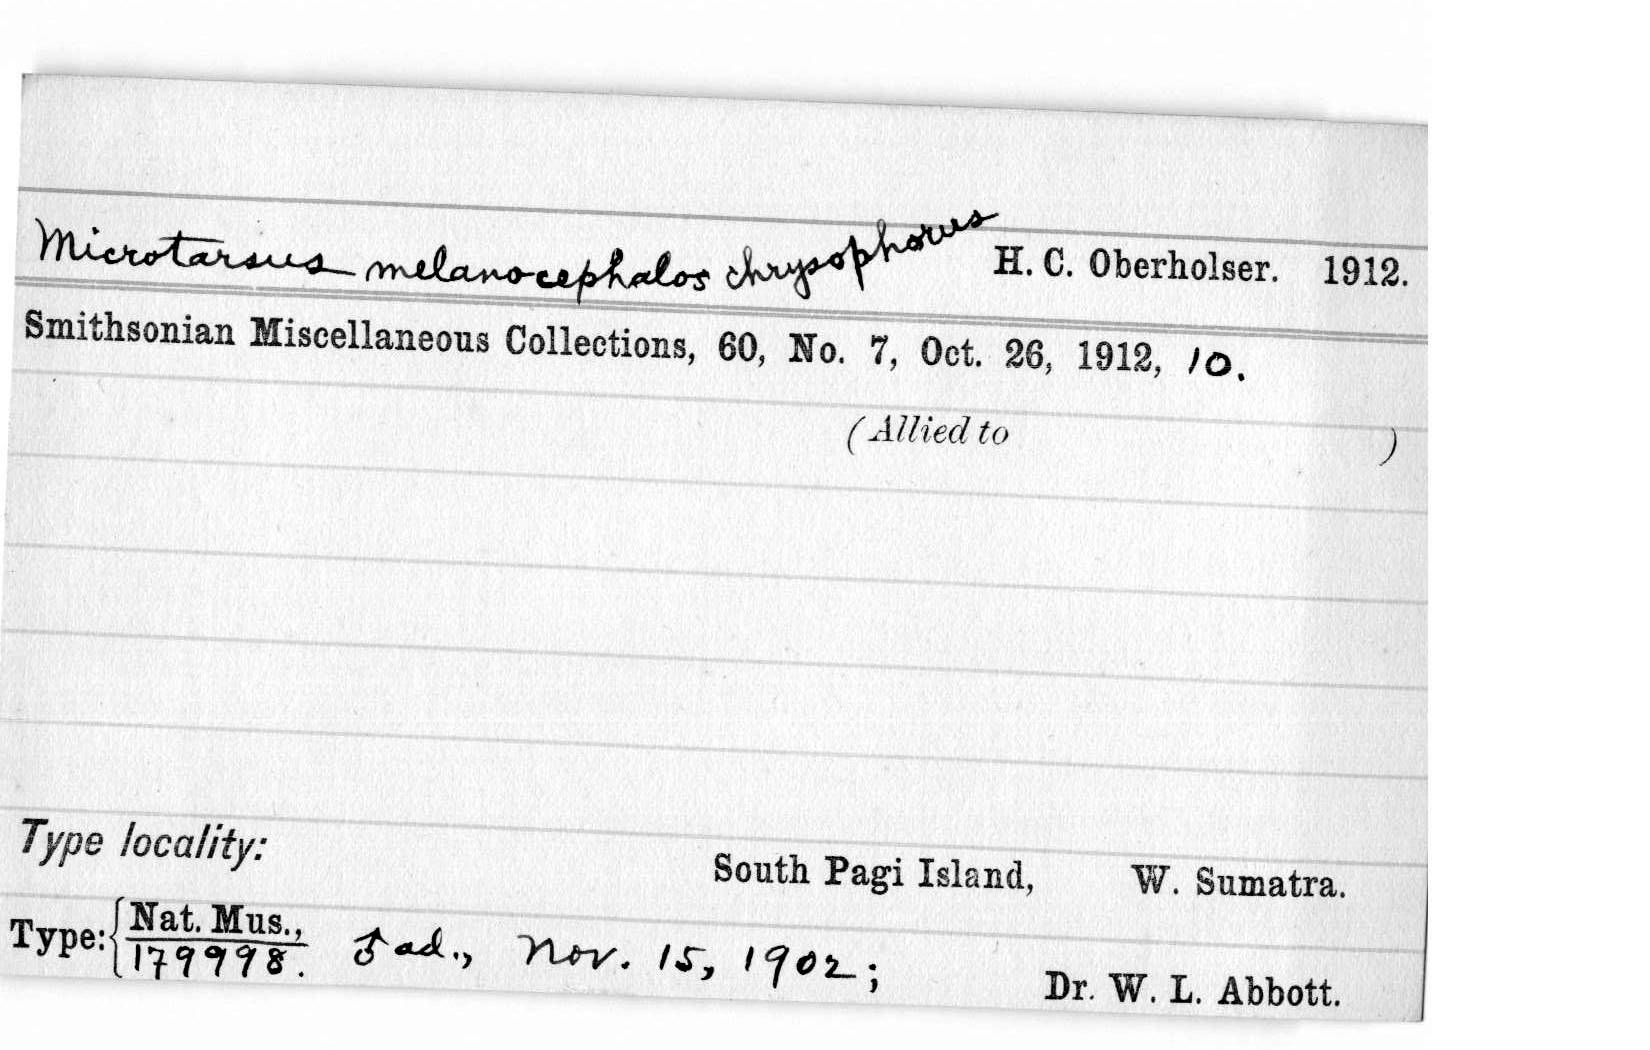 Microtarsus melanocephalos chrysophorus H. C. Oberholser. 1912.
Smithsonian Miscellaneous Collections, 60, No. 7, Oct. 26, 1912, 10.
(Allied to )
Type locality:
South Pagi Island, W. Sumatra.
Type: { Nat. Mus., 179998. ♂ ad., Nov. 15, 1902; Dr. W. L. Abbott.